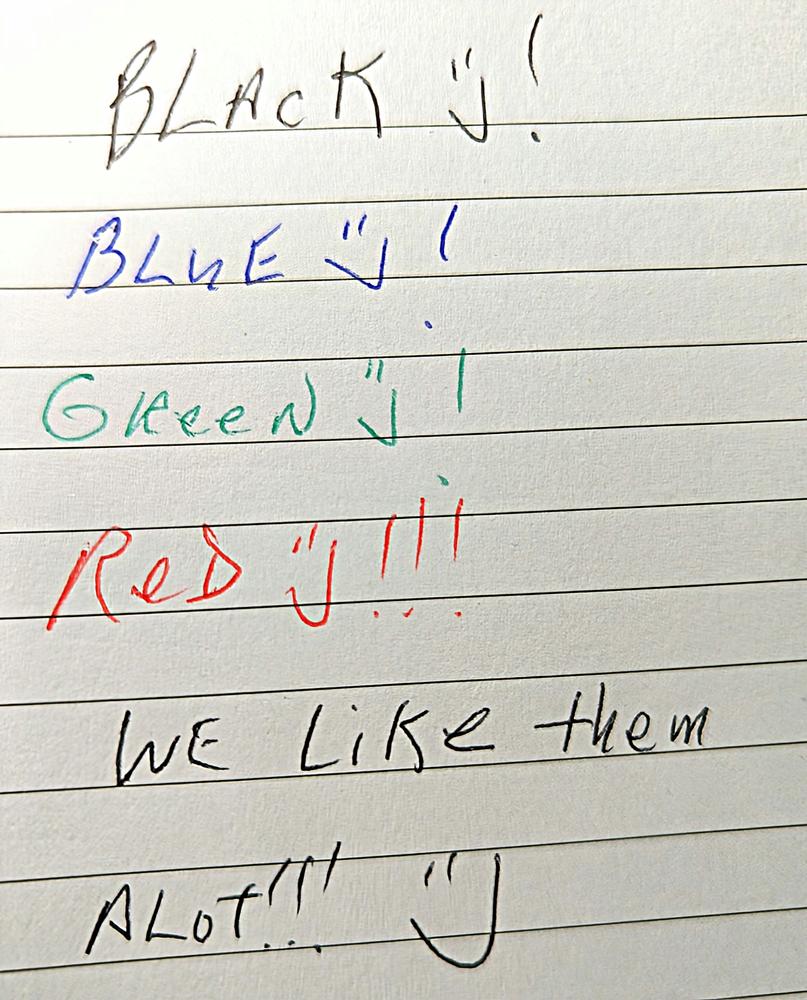 BLAcK :) !
BLuE :) !
GReeN :) !
ReD :) !!!
WE LiKe them
ALoT!!! :)